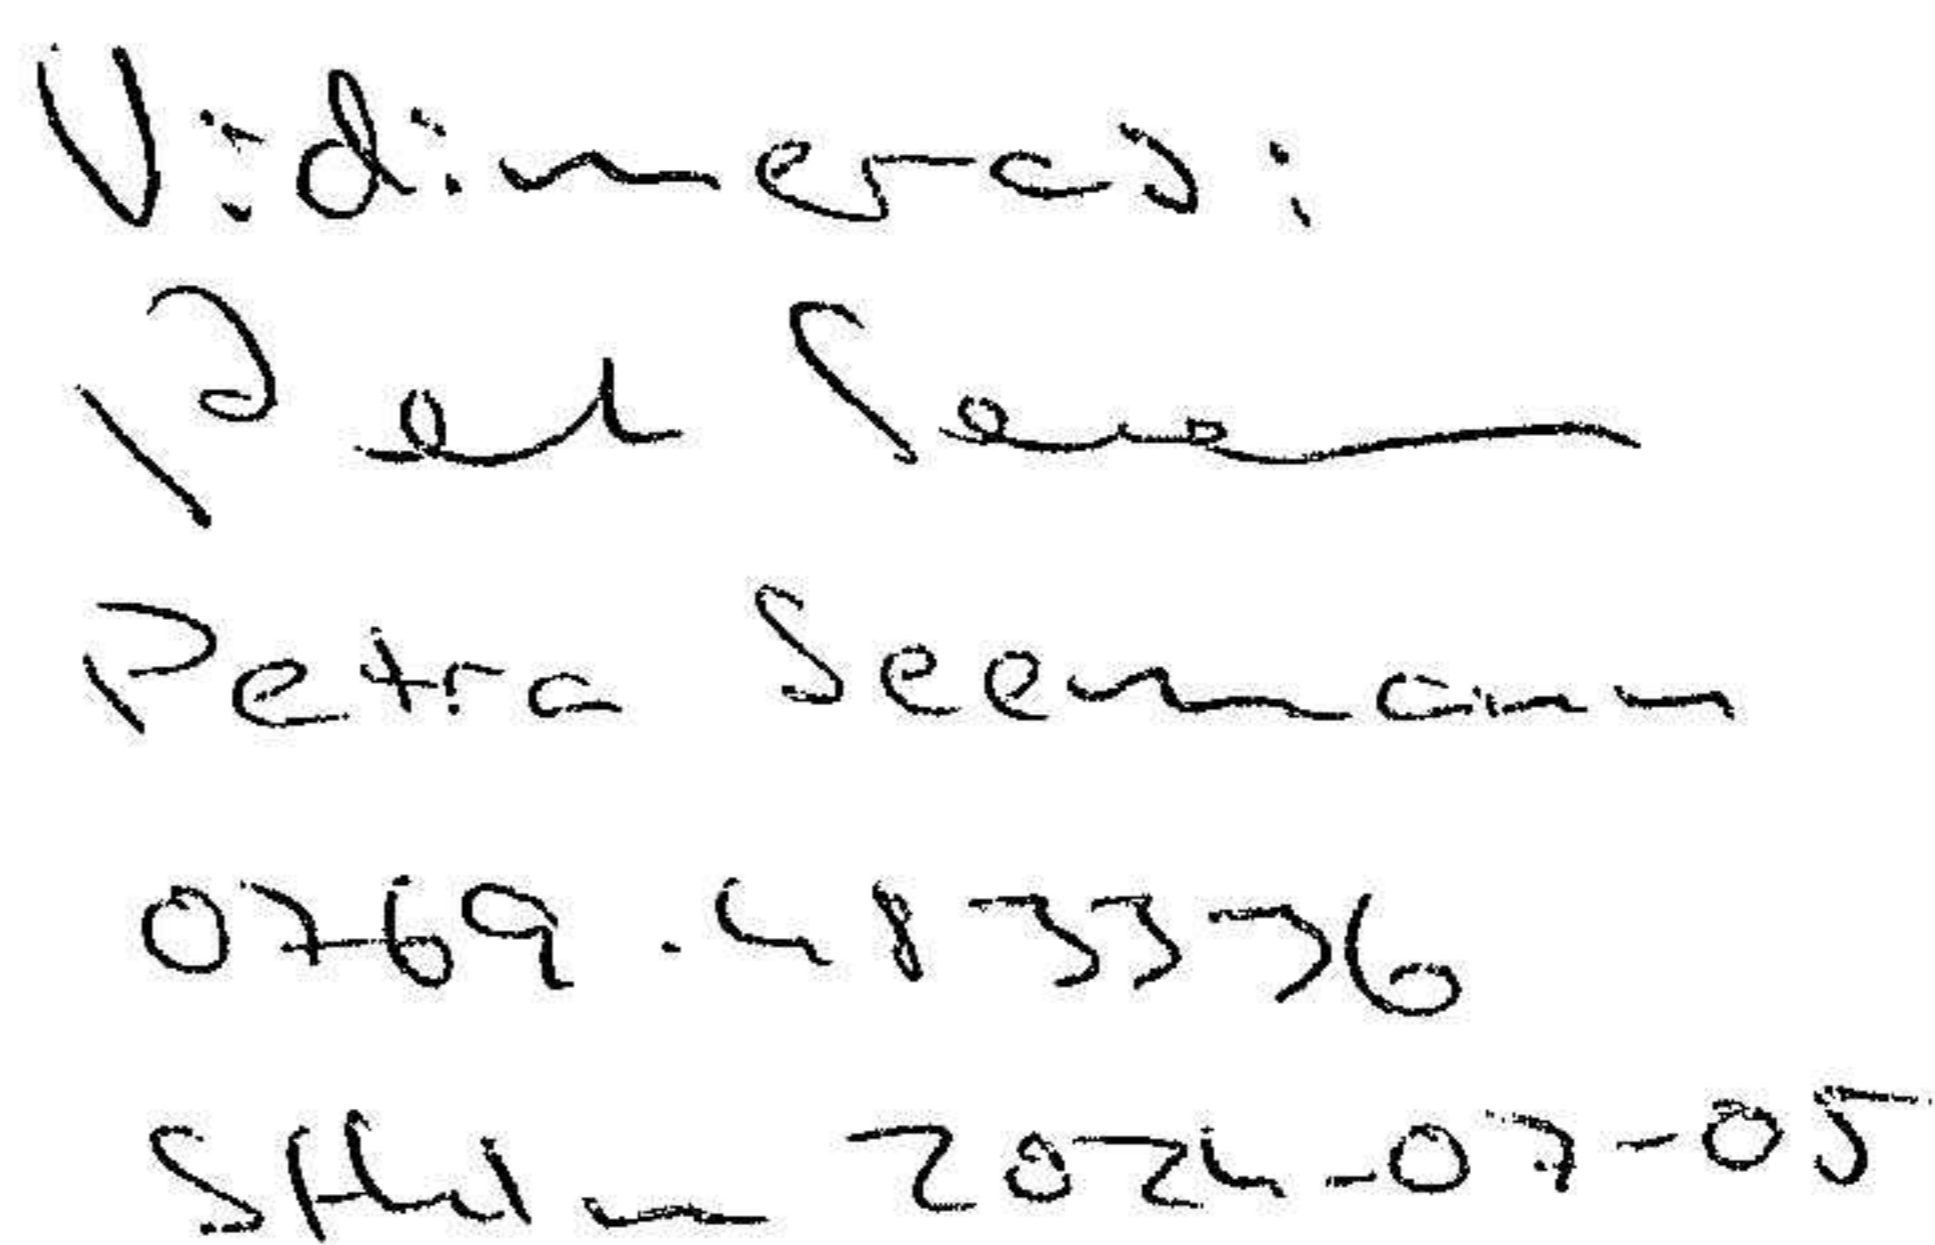 Vidimeras:
Petra Seemann
Petra Seemann
0769-483336
Sthlm 2024-07-05